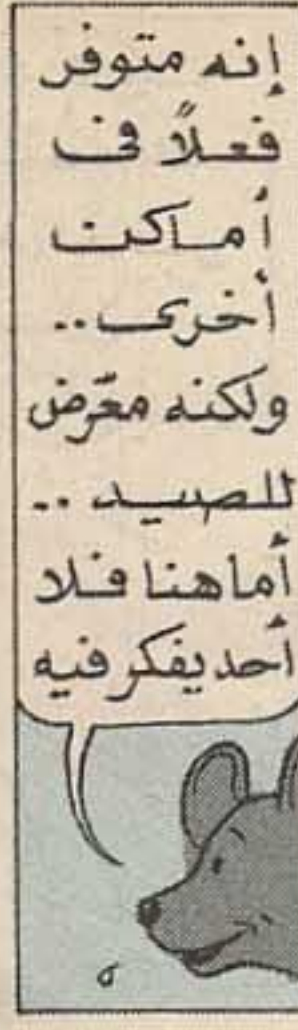 إنه متوفر
فعلاً فى
أماكن
أخرى..
ولكنه معّرض
للصيد..
أما هنا فلا
أحد يفكر فيه